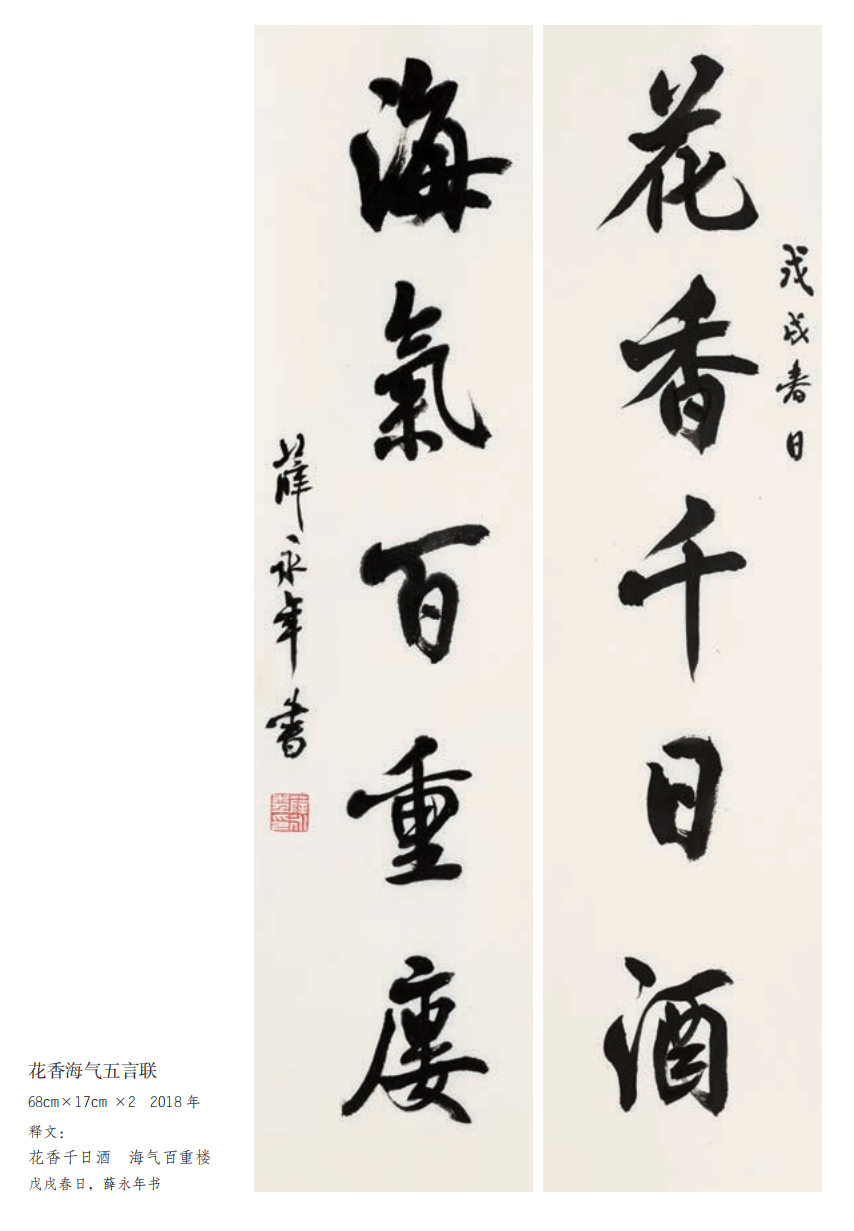 戊戌春日
花香千日酒
海氣百重廔
薛永年書
花香海气五言联
68cm×17cm ×2 2018 年
释文：
花香千日酒 海气百重楼
戊戌春日，薛永年书